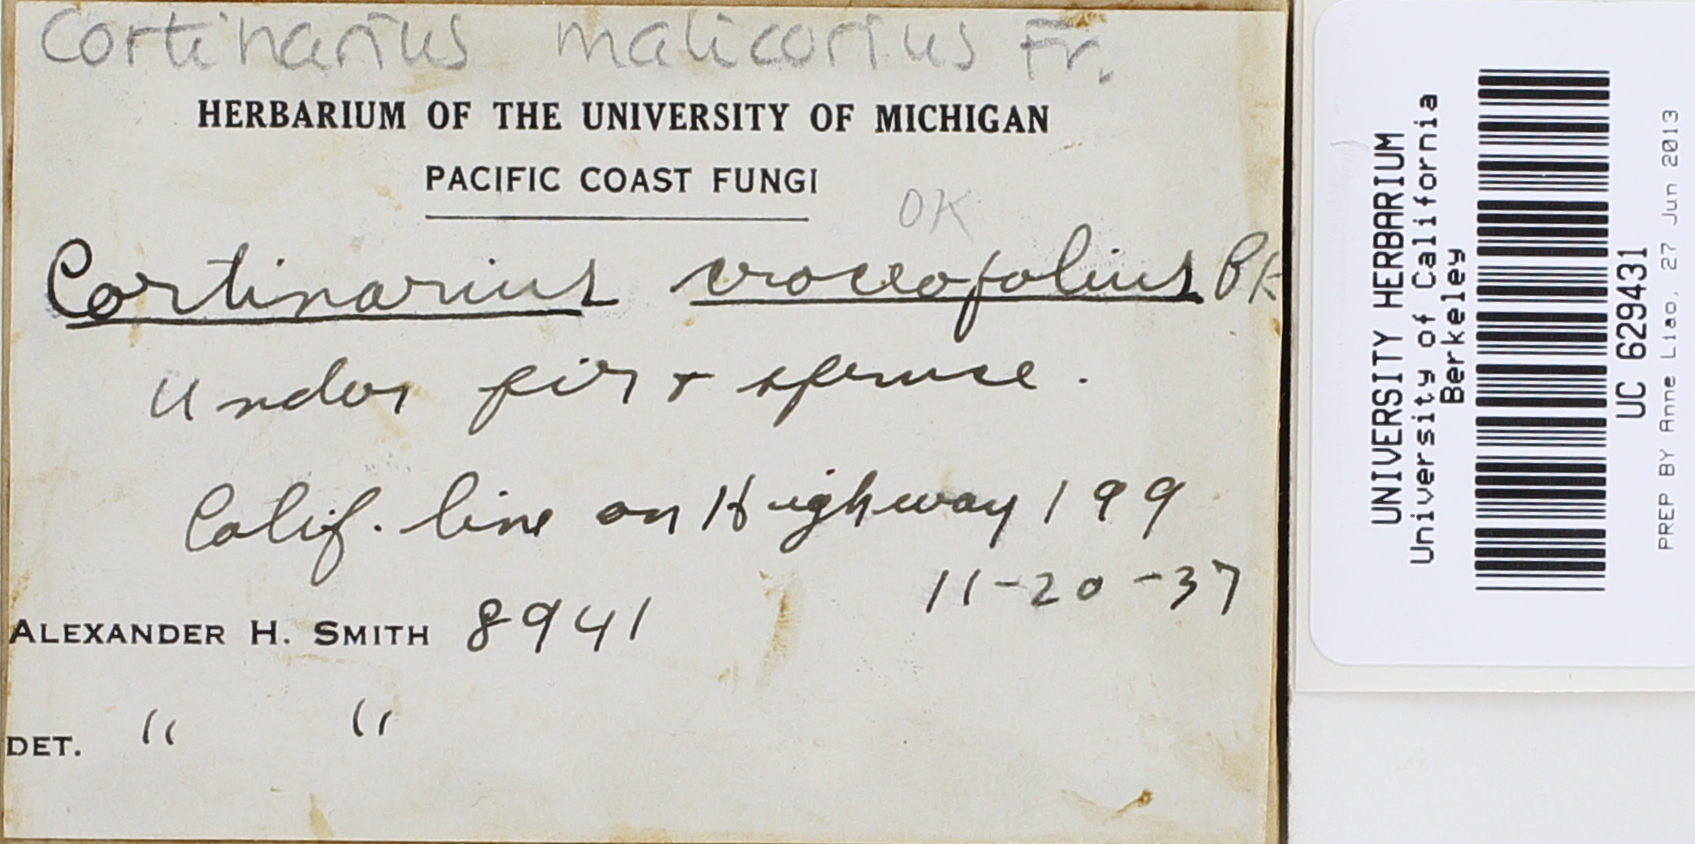 Cortinarius malicorius Fr.
HERBARIUM OF THE UNIVERSITY OF MICHIGAN
PACIFIC COAST FUNGI
OK
Cortinarius croceofolius PK
Under fir + spruce.
Calif. line on Highway 199
11-20-37
ALEXANDER H. SMITH 8941
DET. " "
UNIVERSITY HERBARIUM
University of California
Berkeley
UC 629431
PREP BY Anne Liao, 27 Jun 2013